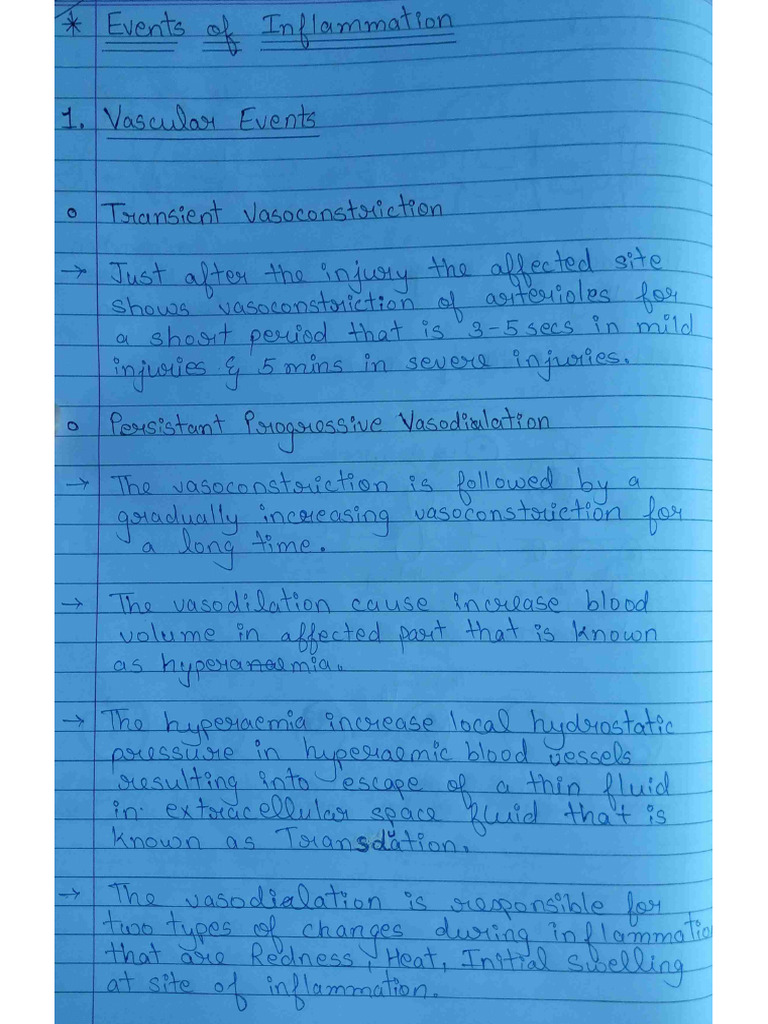 * Events of Inflammation
1. Vascular Events
o Transient Vasoconstriction
→ Just after the injury the affected site
shows vasoconstriction of arterioles for
a short period that is 3-5 secs in mild
injuries & 5 mins in severe injuries.
o Persistant Progressive Vasodialation
→ The vasoconstriction is followed by a
gradually increasing vasoconstriction for
a long time.
→ The vasodilation cause increase blood
volume in affected part that is known
as hyperanaemia.
→ The hyperaemia increase local hydrostatic
pressure in hyperaemic blood vessels
resulting into escape of a thin fluid
in extracellular space fluid that is
known as Transduation.
→ The vasodialation is responsible for
two types of changes during inflammatio
that are Redness, Heat, Initial swelling
at site of inflammation.